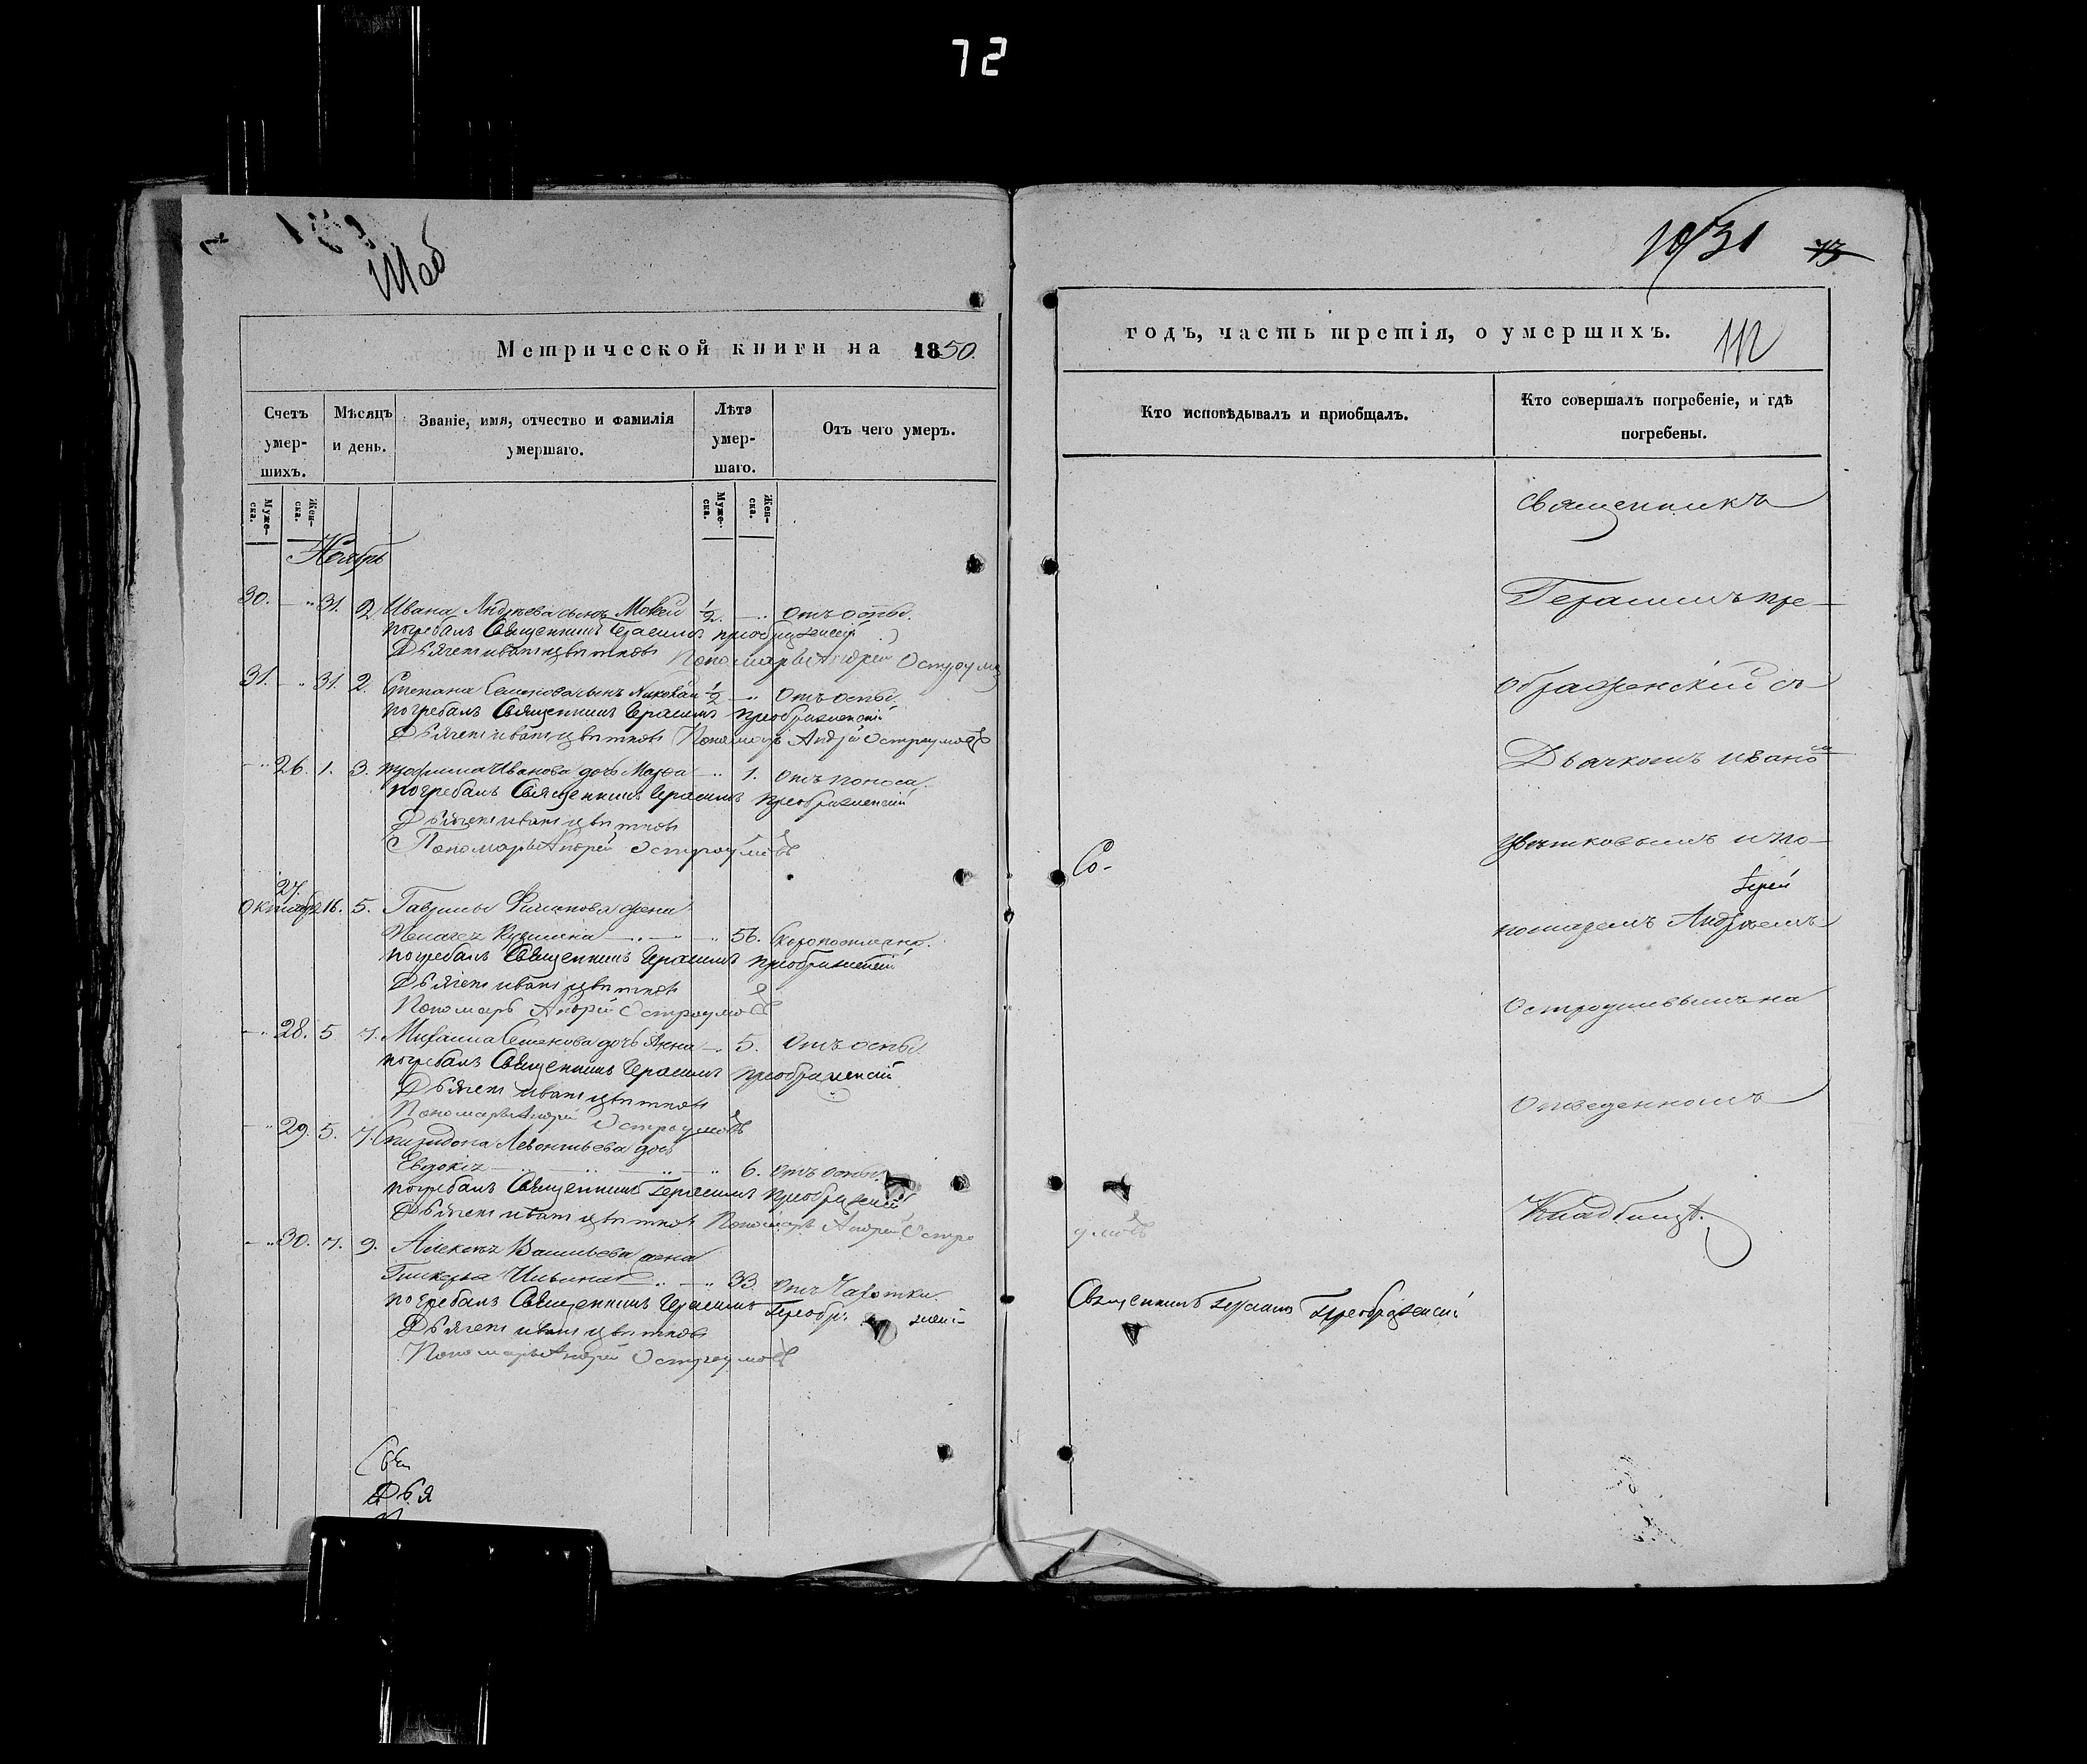 72
Шаб
1031 73
Метрической книги на 1850.
годъ, часть третія, о умершихъ. 112
Счетъ умер-шихъ.
Мѣсяцъ и день.
Званіе, имя, отчество и фамилія умершаго.
Лѣта умер-шаго.
Отъ чего умеръ.
Кто исповѣдывалъ и приобщалъ.
Кто совершалъ погребеніе, и гдѣ погребены.
Муже-ска.
Жен-ска.
Муже-ска.
Жен-ска.
Ноябрь
30. — " 31. 2 Ивана Андреева сынъ Мокей 1/2. — " отъ оспы.
погребалъ Священникъ Герасимъ преображенскій
Дьячекъ иванъ цвѣтковъ Пономарь Андрей Остроумо
31. — " 31. 2. Степана Семенова сынъ Николай 1/2 — " отъ оспы.
погребалъ Священникъ Герасимъ преображенскій
Дьячекъ иванъ цвѣтковъ Пономарь Андрей Остроумовъ
— " 26. 1. 3. трофима Иванова дочь Марфа — " 1. отъ поноса.
погребалъ Священникъ Герасимъ преображенскій
Дьячекъ иванъ цвѣтковъ
Пономарь Андрей Остроумовъ
27.
Октябр 16. 5. Гаврилы Филипова жена
Кузмина — " — " 56. Скоропостижно.
погребалъ Священникъ Герасимъ преображенскій
Дьячекъ иванъ цвѣтковъ
Пономарь Андрей Остроумовъ
— " 28. 5 7. Михаила Семенова дочь Анна — 5. Отъ оспы.
погребалъ Священникъ Герасимъ преображенскій
Дьячекъ иванъ цвѣтковъ
Пономарь Андрей Остроумовъ
— " 29. 5. 7. Спиридона Левонтьева дочь
Евдокія — " — " 6. отъ оспы.
погребалъ Священникъ Герасимъ преображенскій
Дьячекъ иванъ цвѣтковъ Пономарь Андрей Остро
умовъ
— " 30. 7. 9. Алексѣя Васильева жена
Гликерья Ильина — " — " 33. отъ Чахотки.
погребалъ Священникъ Герасимъ Преобр. жені-
Дьячекъ иванъ цвѣтковъ
Пономарь Андрей Остроумовъ
Свя
Дья
священникъ
Герасимъ пре-
ображенскій съ
Дьячкомъ ивано
Со-
цвѣтковымъ и по-
номаремъ Андреемъ
Остроумовымъ на
отведенномъ
Кладбищѣ.
Священникъ Герасимъ Преображенскій